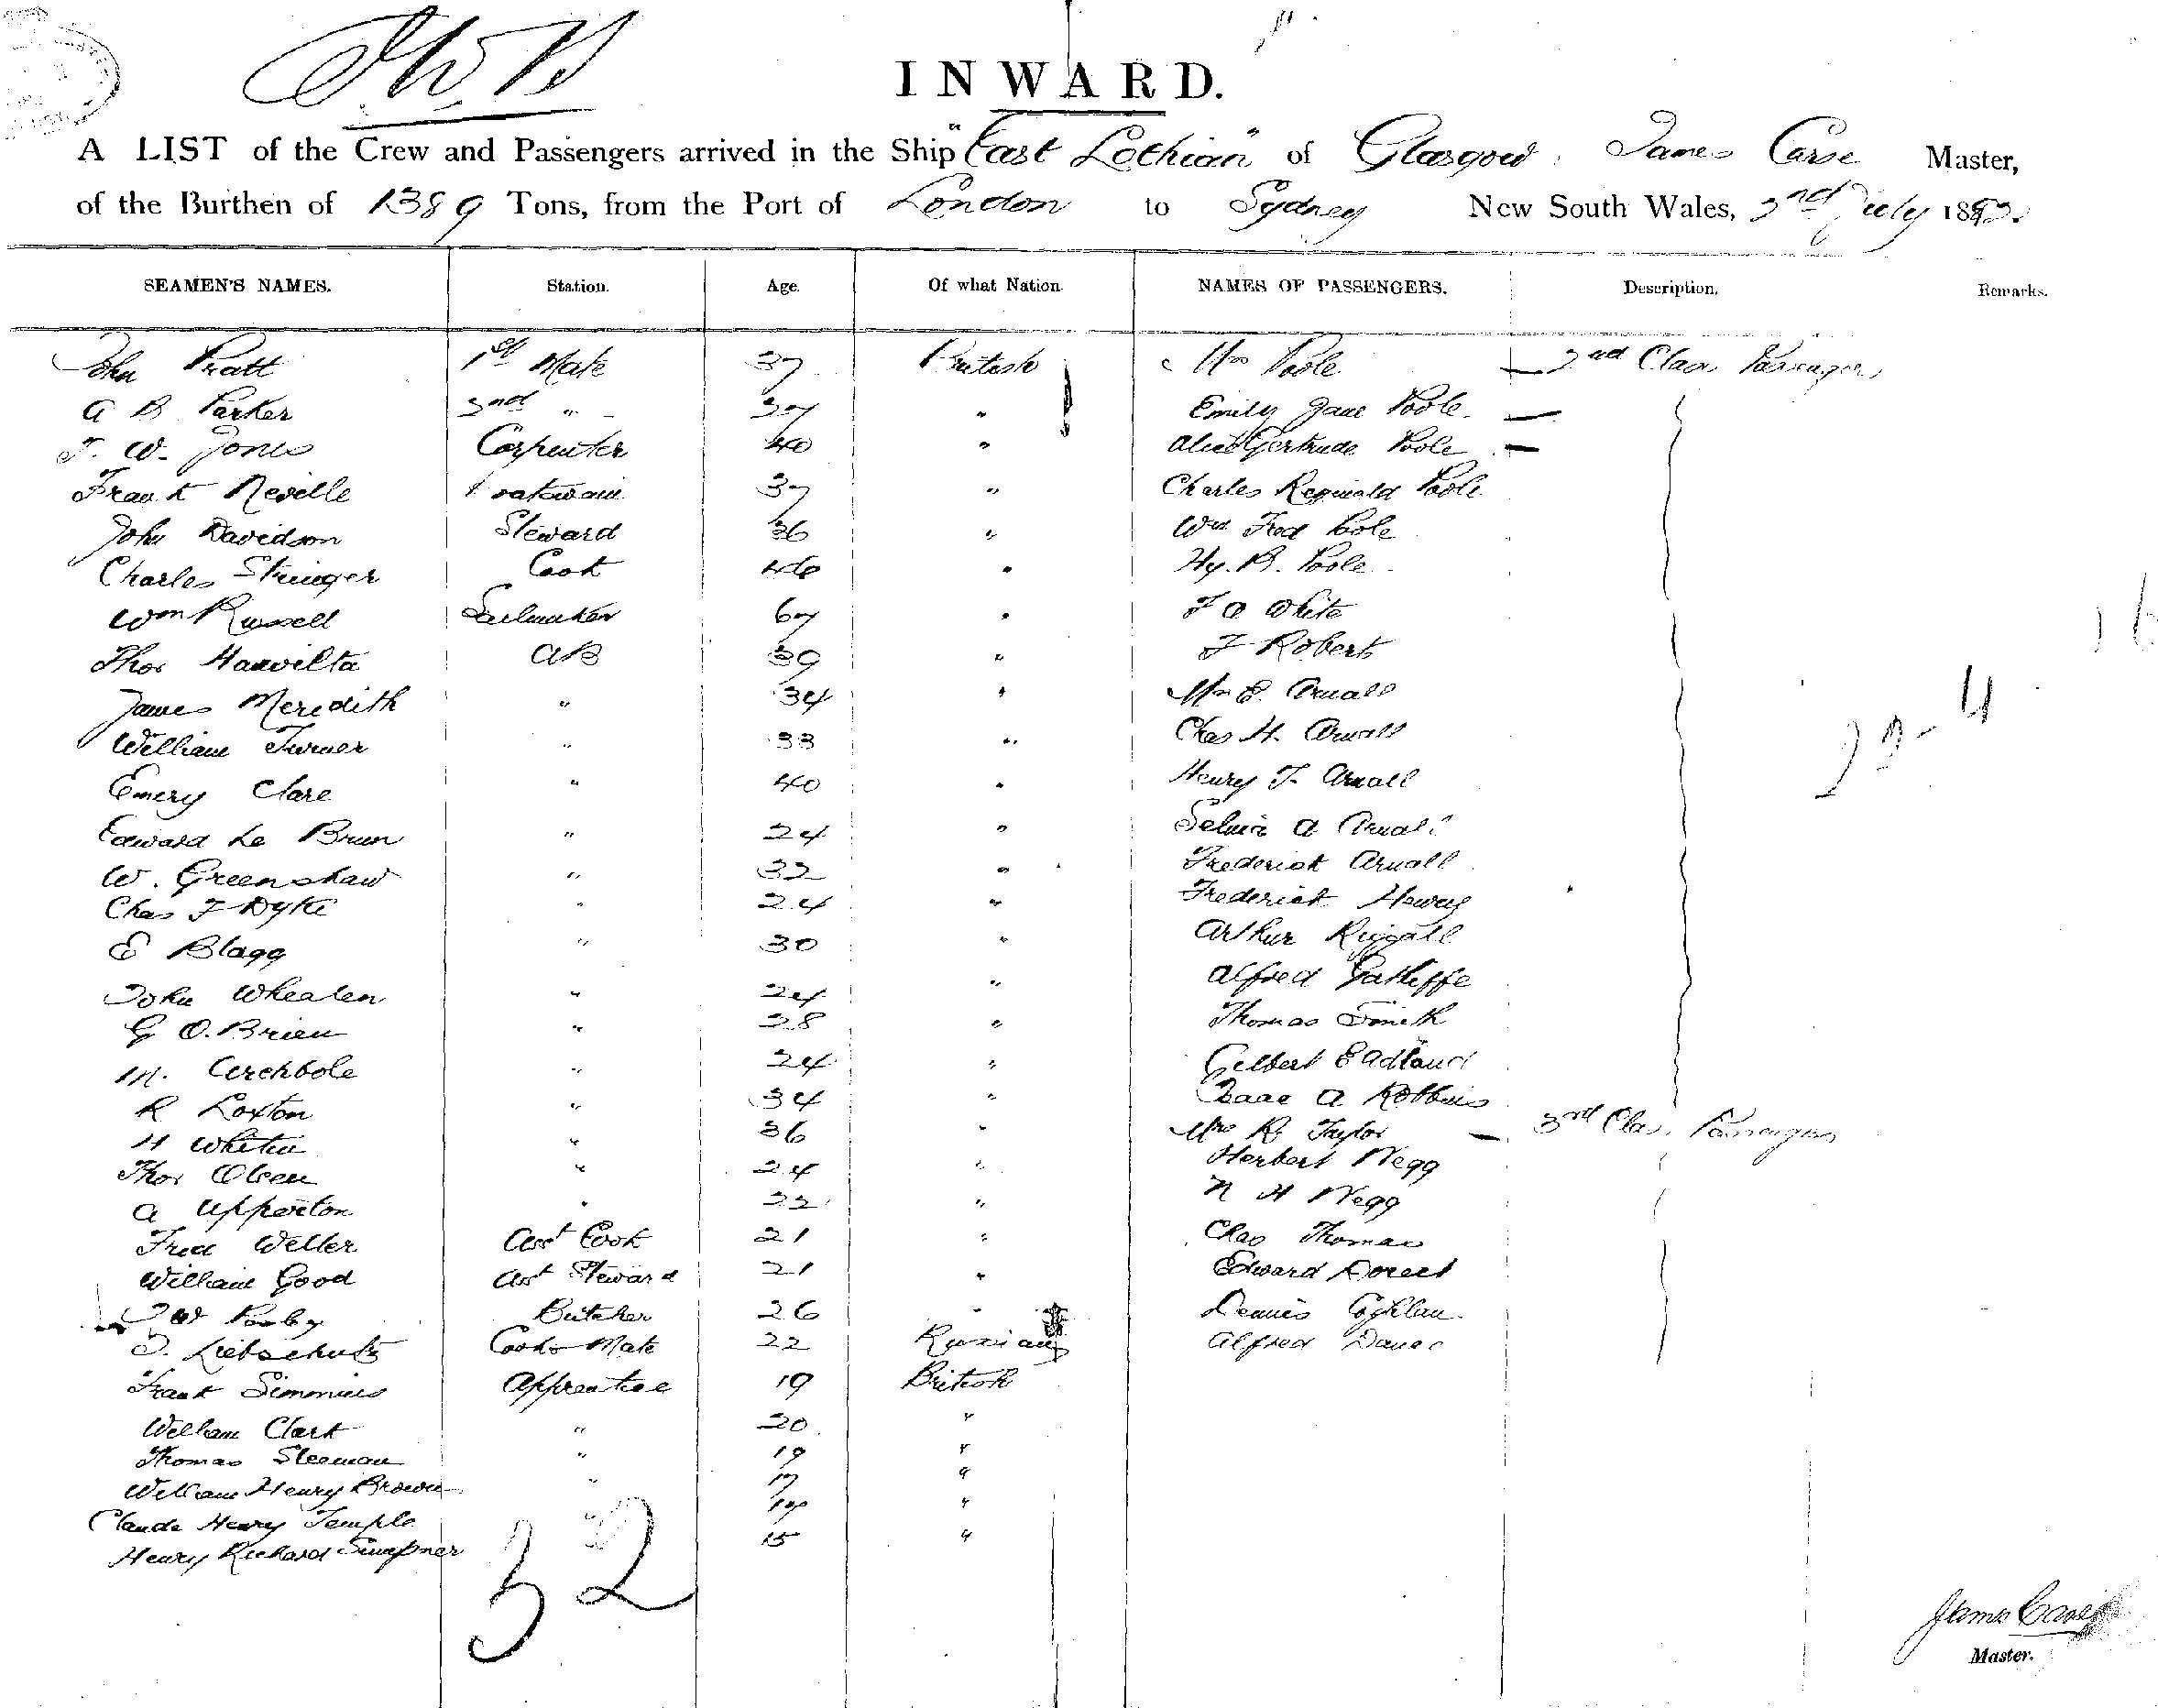 INWARD.
A LIST of the Crew and Passengers arrived in the Ship "East Lothian" of Glasgow, James Carse Master,
of the Burthen of 1389 Tons, from the Port of London to Sydney New South Wales, 2nd July 189
SEAMEN'S NAMES. Station. Age. Of what Nation. NAMES OF PASSENGERS. Description. Remarks.
John Pratt 1st Mate 37 British Poole 2nd Class Passengers
A B Parker 2nd " 37 " Emily Jane Poole
T. W. Jones Carpenter 40 " Alice Gertrude Poole
Frank Neville Boatswain 37 " Charles Reginald Poole
John Davidson Steward 36 " Wm Fred Poole
Charles Stringer Cook 46 " Hy. B. Poole
Wm Russell Sailmaker 67 " F A White
Thos AB 39 " F Roberts
James Meredith " 34 " E. Arnall
William Turner " 33 " Chas H. Arnall
Emery Clare " 40 " Henry J. Arnall
Edward Le Brun " 24 " A Arnall
W. Greenshaw " 32 " Frederick Arnall
Chas F Dyke " 24 " Frederick
E Blagg " 30 " Arthur Riggall
John Whealen " 24 " Alfred
G O.Brien " 28 " Thomas Smith
M. Archbole " 24 " Gilbert
R Loxton " 34 " Isaac A Robbins
H " 36 " Mrs R Taylor 3rd Class Passengers
Thos Olsen " 24 " Herbert Negg
A Upperton " 22 " N H Negg
Fred Weller Asst Cook 21 " Chas Thomas
William Good Asst Steward 21 " Edward
Butcher 26 " Dennis Coghlan
Liebschutz Cooks Mate 22 Russian Alfred
Frank Simmins Apprentice 19 British
William Clark " 20 "
Thomas Sleeman " 19 "
William Henry Brown " 17 "
Claude Henry Temple "
Henry Richard 15 "
32
James Carse
Master.